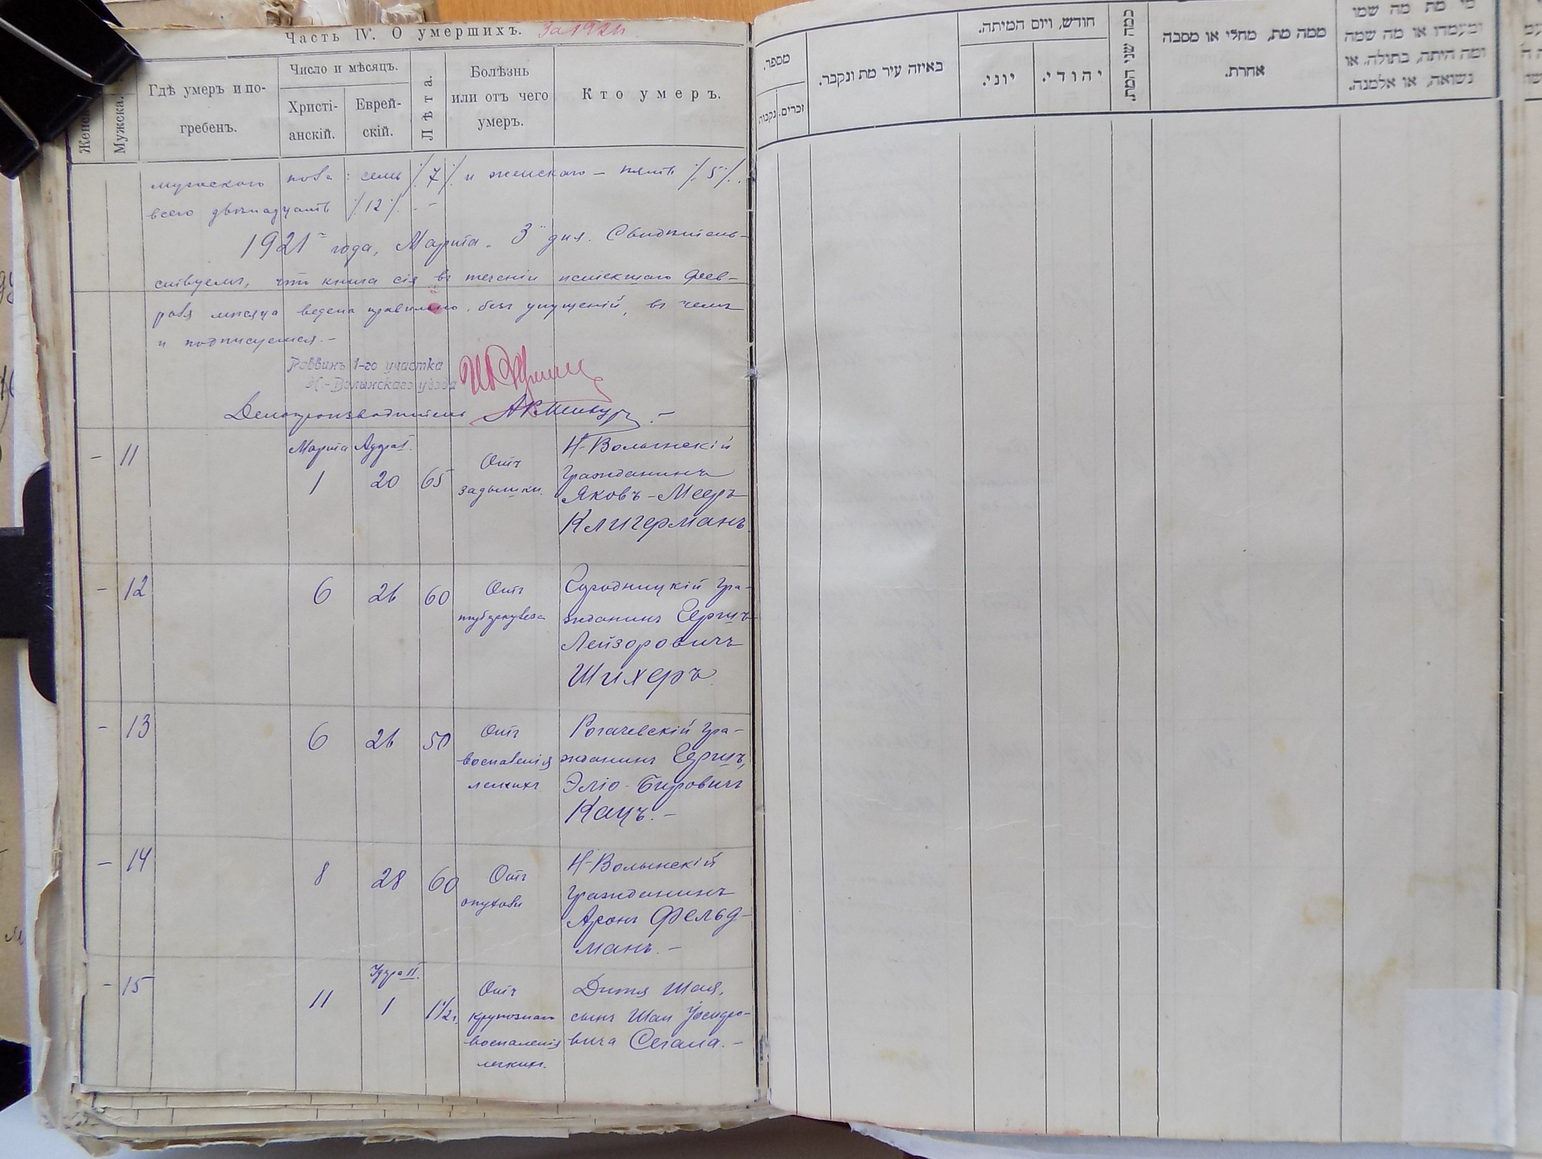 Часть IV. О умершихъ. За 1921
Женска.
Мужска.
Гдѣ умеръ и по-
гребенъ.
Число и мѣсяцъ.
Христі-
анскій.
Еврей-
скій.
Лѣта.
Болѣзнь
или отъ чего
умеръ.
Кто умеръ.
мужского пола семь /7/ и женского – пять /5/.
всего двѣнадцать /12/. –
1921 года, Марта 3 дня. Свидѣтель-
ствуемъ, что книга сія въ теченіи истекшаго фев-
раля мѣсяца ведена правильно, безъ упущеній, въ чемъ
и подписуемся. –
Раввинъ 1-го участка
Н.-Волынскаго уѣзда
Дѣлопроизводитель
– 11
Марта Адара I.
1 20 65
Отъ
задышки.
Н-Волынскій
гражданинъ
Яковъ-Мееръ
Клигерманъ
– 12
6 26 60
Отъ
туберкулеза
Городницкій гра-
жданинъ Герцъ
Лейзоровичъ
Шихеръ.
– 13
6 26 50
Отъ
воспаленія
легкихъ
Рогачевскій гра-
жданинъ Герцъ,
Эліо-Берковичъ
Кацъ. –
– 14
8 28 60
Отъ
опухоли
Н-Волынскій
гражданинъ
Аронъ Фельд-
манъ. –
– 15
Адара II.
11 1 1½ г.
Отъ
крупознаго
воспаленія
легкихъ.
Дитя Шая,
сынъ Шаи
вича Сегала. –
מספר.
זכרים.
נקבות
באיזה עיר מת ונקבר.
חודש, ויום המיתה.
יהודי.
יוני.
כמה שני המת
ממה מת, מחלי או מסבה
אחרת.
מי מת מה שמו
ומעמדו או מה שמה
ומה היתה, בתולה. או
נשואה, או אלמנה.